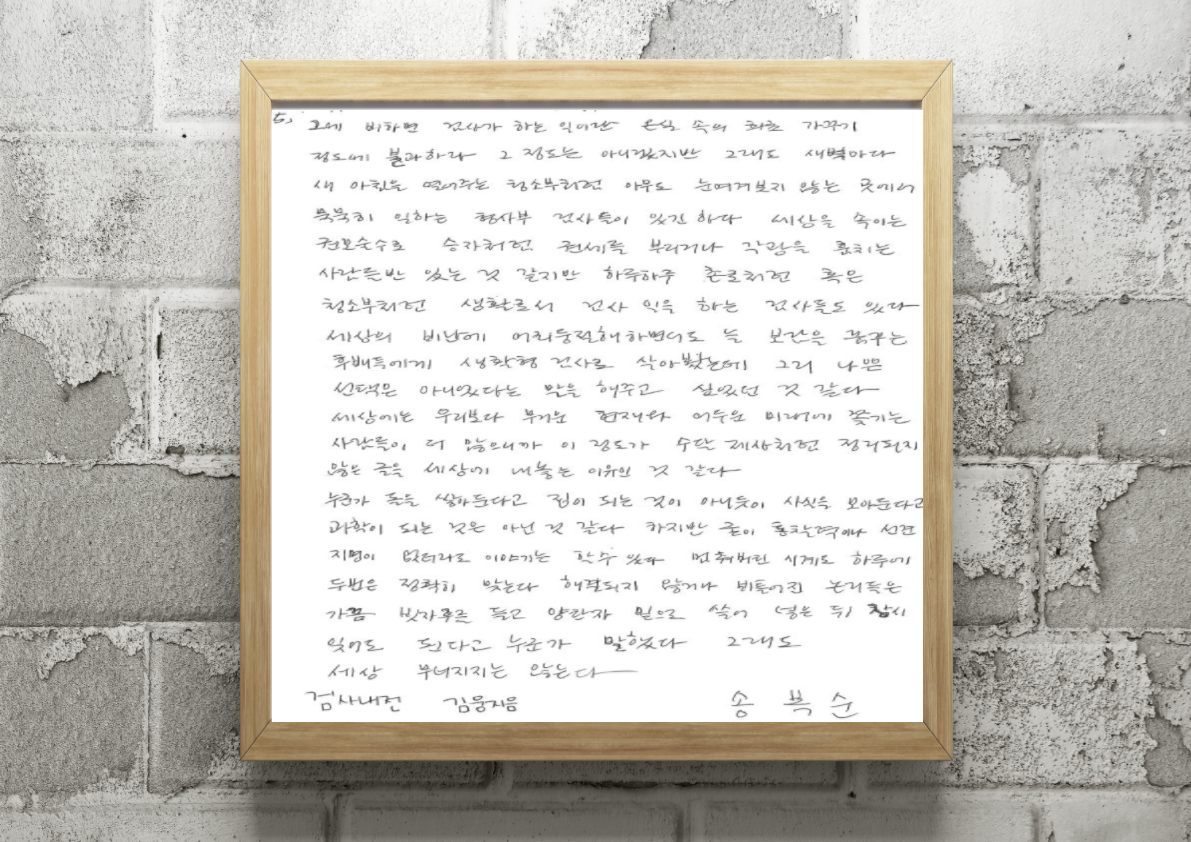 5. 그에 비하면 검사가 하는 일이란 온실 속의 화초 가꾸기
정도에 불과하다 그 정도는 아니겠지만 그래도 새벽마다
새 아침을 열어주는 청소부처럼 아무도 눈여겨보지 않는 곳에서
묵묵히 일하는 형사부 검사들이 있긴 하다 세상을 속이는
권모술수로 승자처럼 권세를 부리거나 각광을 훔치는
사람들만 있는 것 같지만 하루하루 촌로처럼 혹은
청소부처럼 생활로서 검사 일을 하는 검사들도 있다
세상의 비난에 어리둥절해하면서도 늘 보람을 꿈꾸는
후배들에게 생활형 검사로 살아봤는데 그리 나쁜
선택은 아니었다는 말을 해주고 싶었던 것 같다
세상에는 우리보다 무거운 현재와 어두운 미래에 쫓기는
사람들이 더 많으니까 이 정도가 수만 제사처럼 정리되지
않은 글을 세상에 내놓는 이유인 것 같다
누군가 돌을 쌓아둔다고 집이 되는 것이 아니듯이 사실을 모아둔다고
과학이 되는 것은 아닌 것 같다 하지만 굳이 통찰력이나 선견
지명이 없더라도 이야기는 할 수 있다 멈춰버린 시계도 하루에
두번은 정확히 맞는다 해결되지 않거나 비틀어진 논리들은
가끔 빗자루로 들고 양탄자 밑으로 쓸어 넣은 뒤 잠시
잊어도 된다고 누군가 말했다 그래도
세상 무너지지는 않는다
검사내전 김웅지음 송복순